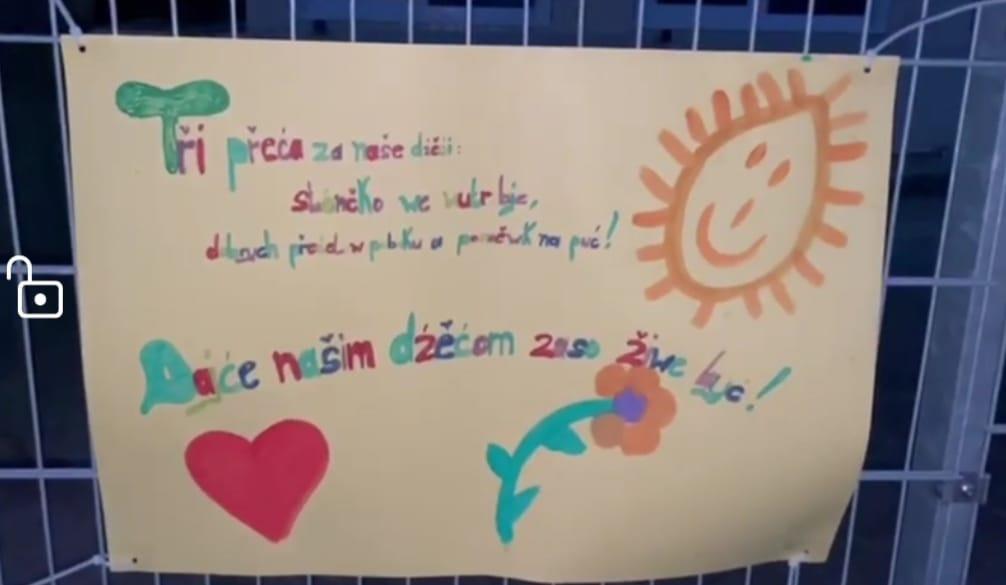 Tři přeća za naše dźěći:
słónčko we wutrobje,
dobrych přećelow pobóku a pomocnikow na puć!
Dajće našim dźěćom zaso žiwe być!